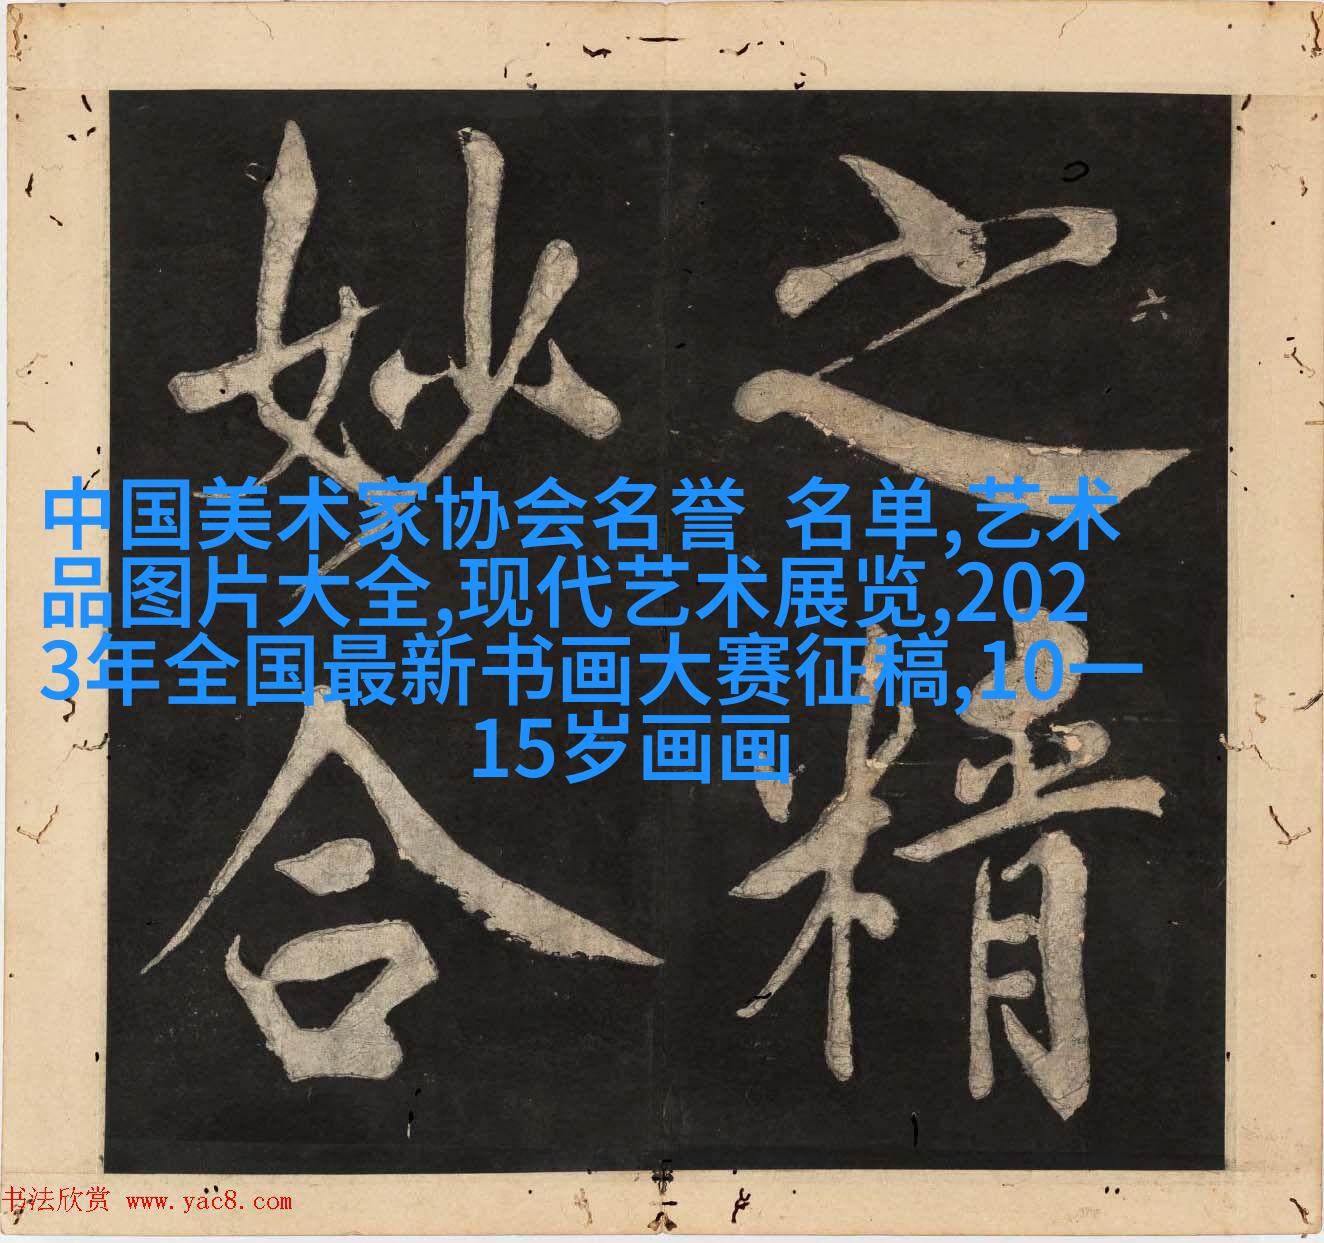 之精
妙合
六
中国美术家协会名誉 名单,艺术
品图片大全,现代艺术展览,202
3年全国最新书画大赛征稿,10一
15岁画画
书法欣赏 www.yac8.com